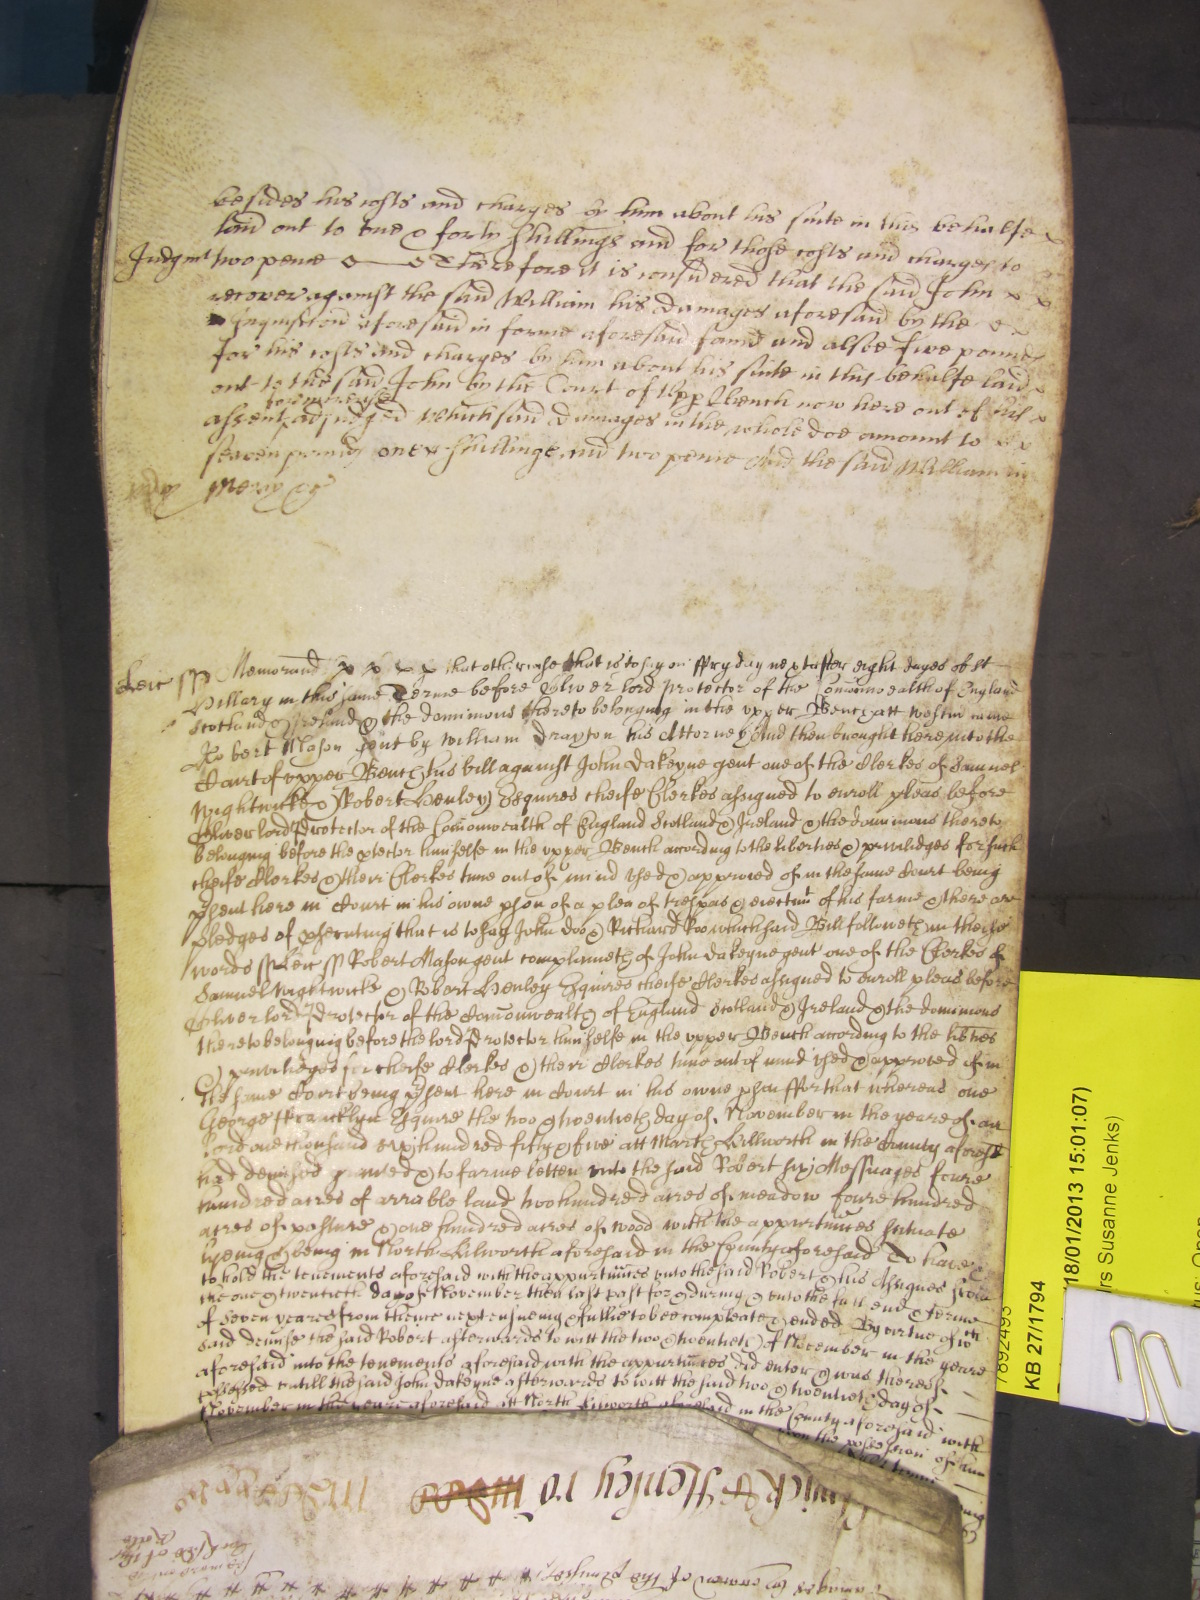 besides his costs and charges by him about his suite in this behalfe
laid out to one & forty shillings and for those costs and charges to
Judgmt two pence Therefore it is considered that the said John
recover against the said William his damages aforesaid by the
Inquisicon aforesaid in forme aforesaid found and alsoe five pounds
for his costs and charges by him about his suite in this behalfe laid
out to the said John by the Court of Upp Bench now here out of his
for increase
assent adjudged which said damages in the whole doe amount to
seaven pounds one shillinge and two pence And the said William in
Mercy &c
Leic ss Memorand that otherwise that is to say on ffryday next after eight dayes of St
Hillary in this same Terme before Oliver lord Protector of the Comonwealth of England
Scotland & Ireland & the dominions thereto belonging in the upper Bench att Westm came
Robert Mason gent by William Drayton his Attorney And then brought here into the
Court of upper Bench his bill against John Dakeyne gent one of the Clerkes of Samuel
Wightwicke & Robert Henley Esquires cheife Clerkes assigned to enroll pleas before
Oliver lord Protector of the Comonwealth of England Scotland & Ireland & the dominions thereto
belonging before the ptector himselfe in the upper Bench according to the liberties & priviledges for such
cheife Clerkes & their Clerkes time out of mind used & approved of in the same Court being
psent here in Court in his owne pson of a plea of trespas & eiectmt of his farme & there are
pledges of psecuting that is to say John Doo & Richard Roo which said Bill followeth in theise
words ss Leic ss Robert Mason gent complaineth of John Dakeyne gent one of the Clerkes of
Samuel Wightwicke & Robert Henley Esquires cheife Clerkes assigned to enroll pleas before
Oliver lord Protector of the Comonwealth of England Scotland & Ireland & the dominions
thereto belonging before the lord Protector himselfe in the upper Bench according to the libties
& priviledges for cheife Clerkes & their Clerkes time out of mind used & approved of in
the same Court being psent here in Court in his owne pson ffor that whereas one
George ffrancklyn Esquire the two & twentieth day of November in the yeare of our
Lord one thousand six hundred fifty & five att North Killworth in the County aforesd
had demised granted & to farme letten unto the said Robert six Messuages foure
hundred acres of arrable land two hundred acres of meadow foure hundred
acres of pasture & one hundred acres of wood with the appurtunces scituate
lyeing & being in North Kilworth aforesaid in the County aforesaid To have &
to hold the tenements aforesaid with the appurtunces unto the said Robert & his Assignes from
the one & twentieth day of November then last past for & during & unto the full end & terme
of seven yeares from thence next ensueing & fullie to bee compleate & ended By virtue of wch
said demise the said Robert afterwards to witt the two & twentieth of November in the yeare
aforesaid into the tenements aforesaid with the appurtunces did enter & was thereof
possessed untill the said John Dakeyne afterwards to witt the said two & twentieth day of
November in the yeare aforesaid att North Kilworth aforesaid in the County aforesaid with
upon the possession of him
wick & Henley ro
18/01/2013 15:01:07)
rs Susanne Jenks)
7892493
KB 27/1794